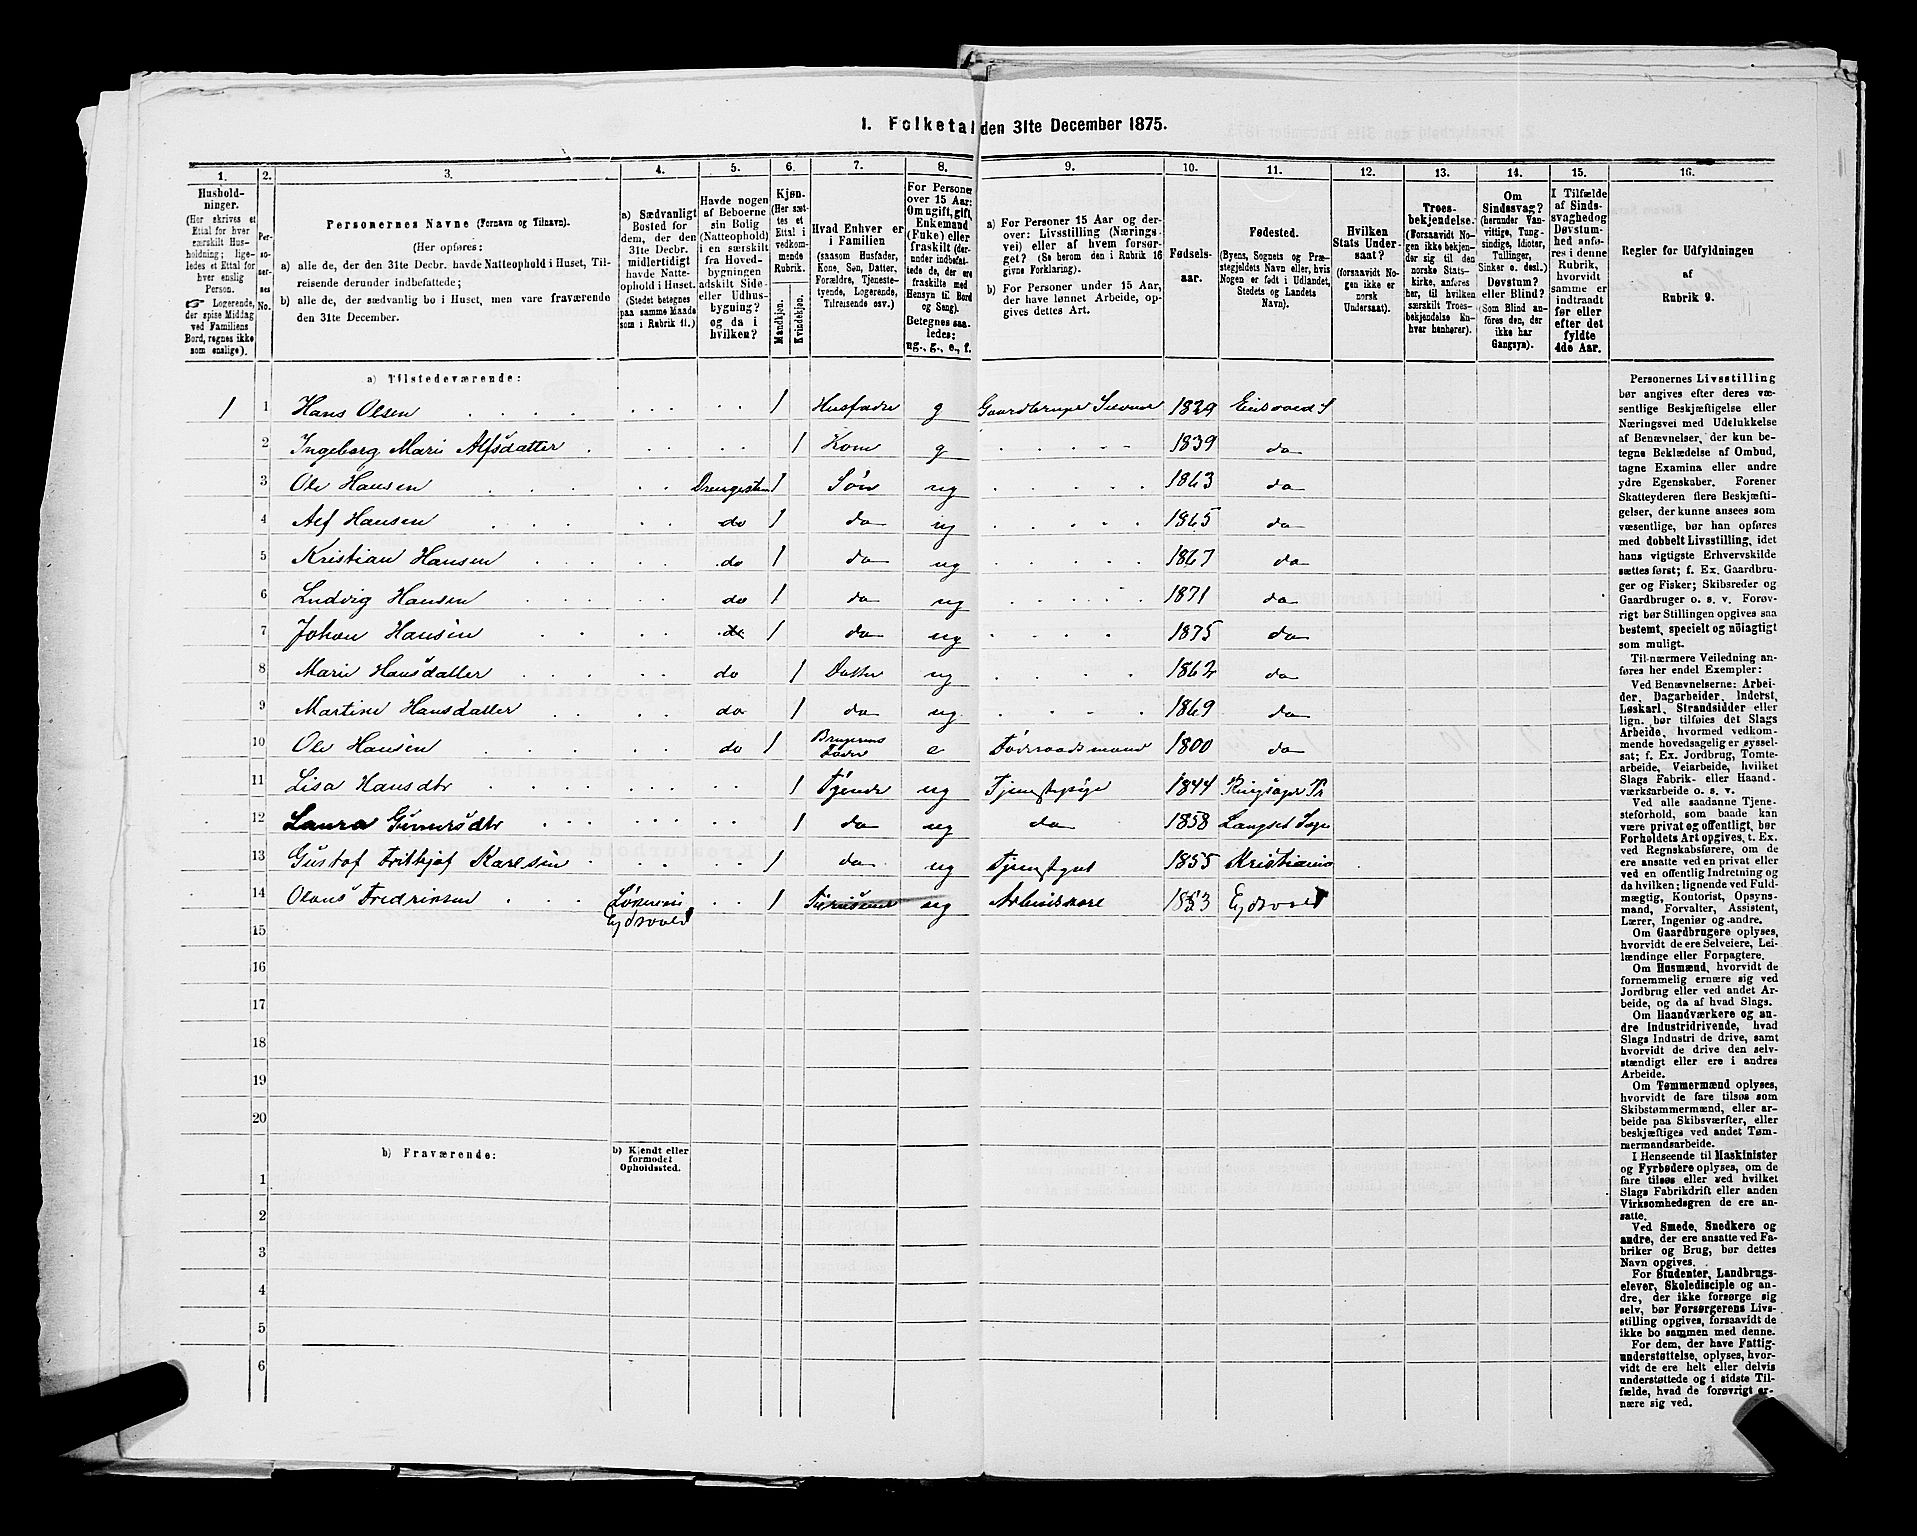 1. Folketal den 31te December 1875.
1. 2. 3. 4. 5. 6. 7. 8. 9. 10. 11. 12. 13. 14. 15. 16.
Hushold-
ninger.
(Her skrives et
Ettal for hver
særskilt Hus-
holdning; lige-
ledes et Ettal for
hver enslig
Person.
☞ Logerende,
der spise Middag
ved Familiens
Bord, regnes ikke
som enslige).
Per-
so-
ner-
nes
No.
Personernes Navne (Fornavn og Tilnavn).
(Her opføres:
a) alle de, der den 31te Decbr. havde Natteophold i Huset, Til-
reisende derunder indbefattede;
b) alle de, der sædvanlig bo i Huset, men vare fraværende
den 31te December.
a) Sædvanligt
Bosted for
dem, der den
31te Decbr.
midlertidigt
havde Natte-
ophold i Huset.
(Stedet betegnes
paa samme Maade
som i Rubrik 11.)
Havde nogen
af Beboerne
sin Bolig
(Natteophold)
i en særskilt
fra Hoved-
bygningen
adskilt Side-
eller Udhus-
bygning?
og da i
hvilken?
Kjøn.
(Her sæt-
tes et
Ettal i
vedkom-
mende
Rubrik.
Mandkjøn.
Kvindekjøn.
Hvad Enhver er
i Familien
(saasom Husfader,
Kone, Søn, Datter,
Forældre, Tjeneste-
tyende, Logerende,
Tilreisende osv.)
For Personer
over 15 Aar:
Om ugift, gift,
Enkemand
(Enke) eller
fraskilt (der-
under indbefat-
tede de, der ere
fraskilte med
Hensyn til Bord
og Seng).
Betegnes saa-
ledes:
ug., g., e., f.
a) For Personer 15 Aar og der-
over: Livsstilling (Nærings-
vei) eller af hvem forsør-
get? (Se herom den i Rubrik 16
givne Forklaring).
b) For Personer under 15 Aar,
der have lønnet Arbeide, op-
gives dettes Art.
Fødsels-
aar.
Fødested.
(Byens, Sognets og Præ-
stegjeldets Navn eller, hvis
Nogen er født i Udlandet,
Stedets og Landets
Navn).
Hvilken
Stats Under-
saat?
(forsaavidt No-
gen ikke er
norsk
Undersaat).
Troes-
bekjendelse.
(Forsaavidt No-
gen ikke bekjen-
der sig til den
norske Stats-
kirke, anføres
her, til hvilken
særskilt Troes-
bekjendelse En-
hver henhører).
Om
Sindssvag?
(herunder Van-
vittige, Tung-
sindige, Idioter,
Tullinger,
Sinker o. desl.)
Døvstum?
eller Blind?
(Som Blind an-
føres den, der
ikke har
Gangsyn).
I Tilfælde
af Sinds-
svaghed og
Døvstum-
hed anfø-
res i denne
Rubrik,
hvorvidt
samme er
indtraadt
før eller
efter det
fyldte
4de Aar.
Regler for Udfyldningen
af
Rubrik 9.
a) Tilstedeværende:
1 1 Hans Olsen 1 Husfader g 1829
2 Ingeborg Marie Alfsdatter 1 Kone g 1839 do
3 Ole Hansen 1 Søn ug 1863 do
4 Alf Hansen do 1 do ug 1865 do
5 Kristian Hansen do 1 do ug 1867 do
6 Ludvig Hansen do 1 do ug 1871 do
7 Johan Hansen 1 do ug 1875 do
8 Marie Hansdatter do 1 Datter ug 1862 do
9 Martine Hansdatter do 1 do ug 1869 do
10 Ole Hansen do 1 Brugerens Fader e Føderaadsmand 1800 do
11 Lisa Hansdtr 1 Tyende ug Tjenestepige 1844
12 Laura Gunersdtr 1 do ug do 1858 Langset Sogn
13 Gustaf Frithjof Karlsen 1 do ug Tjenestegut 1855 Kristiania
14 Olaus Fredriksen Eydsvold 1 ug Eydsvold
15
16
17
18
19
20
b) Fraværende:
b) Kjendt eller
formodet
Opholdssted.
1
2
3
4
5
6
Personernes Livsstilling
bør angives efter deres væ-
sentlige Beskjæftigelse eller
Næringsvei med Udelukkelse
af Benævnelser, der kun be-
tegne Beklædelse af Ombud,
tagne Examina eller andre
ydre Egenskaber. Forener
Skatteyderen flere Beskjæfti-
gelser, der kunne ansees som
væsentlige, bør han opføres
med dobbelt Livsstilling, idet
hans vigtigste Erhvervskilde
sættes først; f. Ex. Gaardbru-
ger og Fisker; Skibsreder og
Gaardbruger o. s. v. Forøv-
rigt bør Stillingen opgives saa
bestemt, specielt og nöiagtigt
som muligt.
Til nærmere Veiledning an-
føres her endel Exempler:
Ved Benævnelserne: Arbei-
der, Dagarbeider, Inderst,
Løskarl, Strandsidder eller
lign. bør tilføies det Slags
Arbeide, hvormed vedkom-
mende hovedsagelig er syssel-
sat; f. Ex. Jordbrug, Tomte-
arbeide, Veiarbeide, hvilket
Slags Fabrik- eller Haand-
værksarbeide o. s. v.
Ved alle saadanne Tjene-
steforhold, som baade kan
være privat og offentligt, bør
Forholdets Art opgives, t. Ex.
ved Regnskabsførere, om de
ere ansatte ved en privat eller
ved en offentlig Indretning og
da hvilken; lignende ved Fuld-
mægtig, Kontorist, Opsyns-
mand, Forvalter, Assistent,
Lærer, Ingeniør og andre.
Om Gaardbrugere oplyses,
hvorvidt de ere Selveiere, Lei-
lændinge eller Forpagtere.
Om Husmænd, hvorvidt de
fornemmelig ernære sig ved
Jordbrug eller ved andet Ar-
beide, og da af hvad Slags.
Om Haandværkere og an-
dre Industridrivende, hvad
Slags Industri de drive, samt
hvorvidt de drive den selv-
stændigt eller ere i andres
Arbeide.
Om Tømmermænd oplyses,
hvorvidt de fare tilsøs som
Skibstømmermænd, eller ar-
beide paa Skibsværfter, eller
beskjæftiges ved andet Tøm-
mermandsarbeide.
I Henseende til Maskinister
og Fyrbødere oplyses, om de
fare tilsøs eller ved hvilket
Slags Fabrikdrift eller anden
Virksomhedsgren de ere an-
satte.
Ved Smede, Snedkere og
andre, der ere ansatte ved Fa-
briker og Brug, bør dettes
Navn opgives.
For Studenter, Landbrugs-
elever, Skoledisciple og an-
dre, der ikke forsørge sig
selv, bør Forsørgerens Livs-
stilling opgives, forsaavidt de
ikke bo sammen med denne.
For dem, der have Fattig-
understøttelse, oplyses, hvor-
vidt de ere helt eller delvis
understøttede og i sidste Til-
fælde, hvad de forøvrigt er-
nære sig ved.